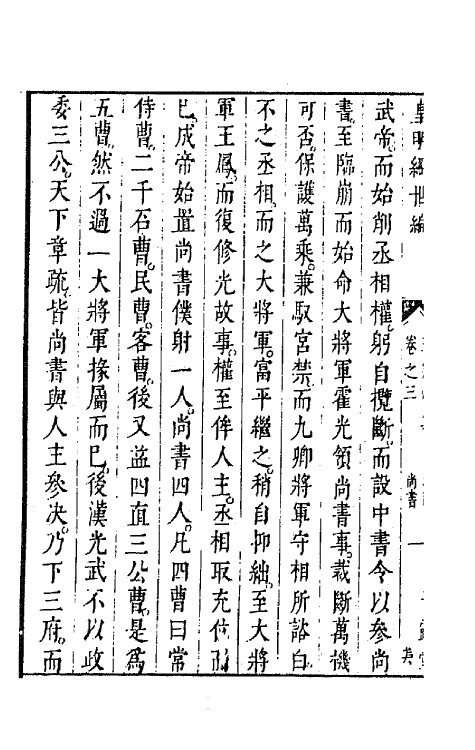 皇明經世編
卷之三
尚書
一
武帝而始削丞相權躬自攬斷而設中書令以參尚
書至臨崩而始命大將軍霍光領尚書事裁斷萬機
可否保護萬乘兼馭宮禁而九卿將軍守相所諮白
不之丞相而之大將軍富平繼之稍自抑絀至大將
軍王鳳而復修光故事權至侔人主丞相取充位而
已成帝始置尚書僕射一人尚書四人凡四曹曰常
侍曹二千石曹民曹客曹後又益四直三公曹是爲
五曹然不過一大將軍掾屬而已後漢光武不以政
委三公天下章疏皆尚書與人主參決乃下三府而